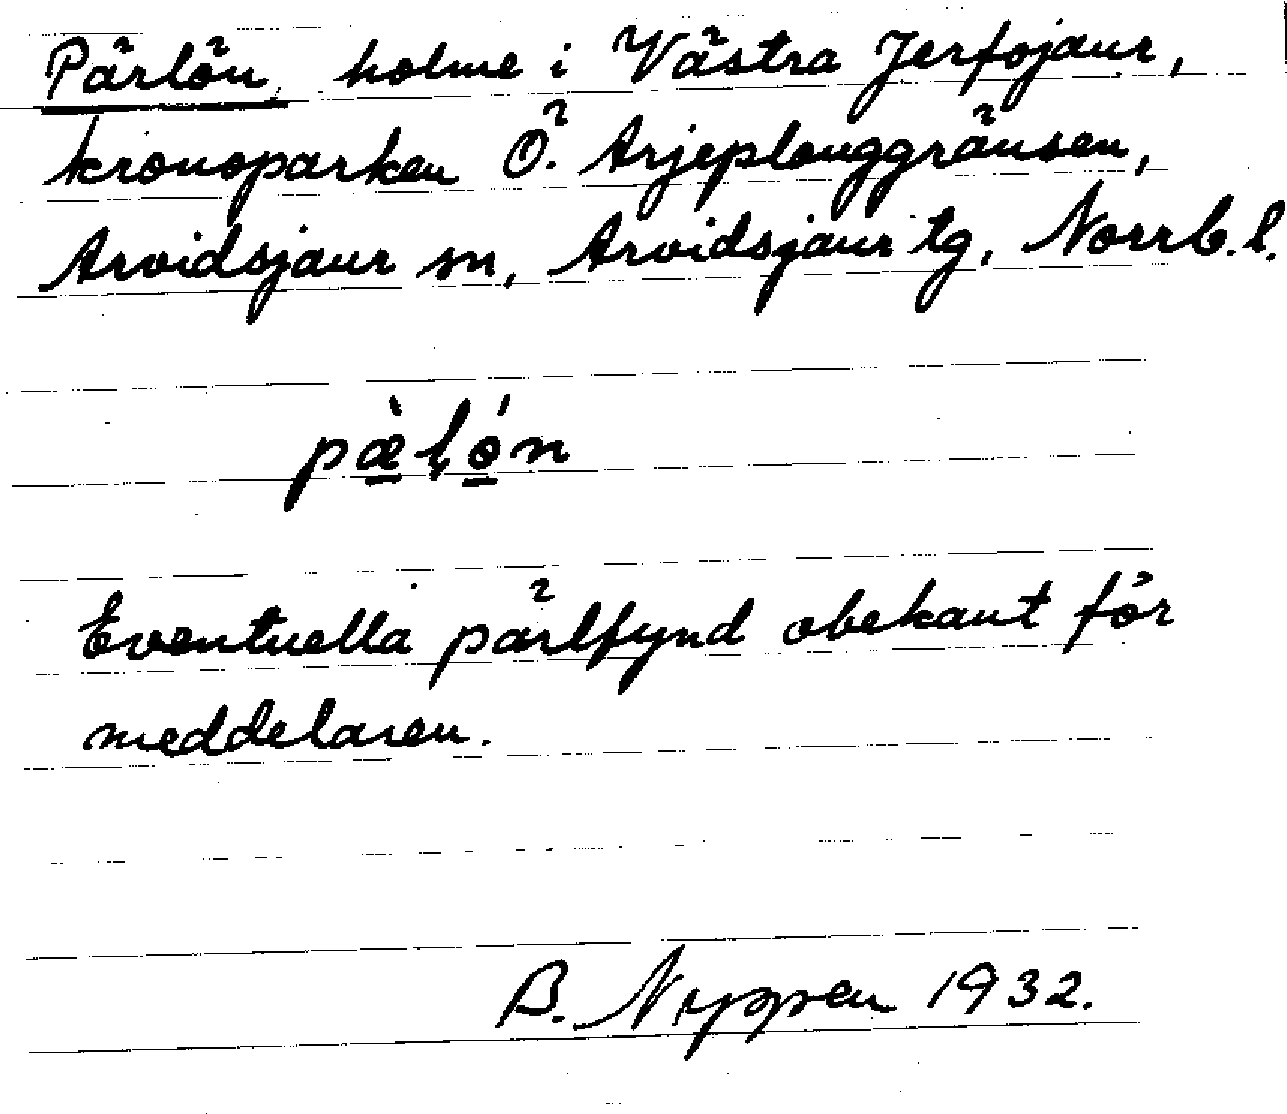 Pärlön, holme i Västra Jerfojaur,
kronoparken Ö. Arjeplouggränsen,
Arvidsjaur sn, Arvidsjaur tg, Norrb. l.
pæ̀ḷǿn
Eventuella pärlfynd obekant för
meddelaren.
B. Nyppen 1932.